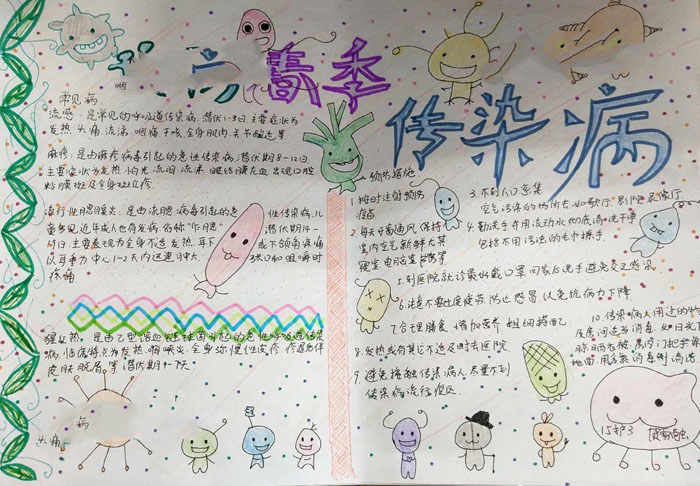 春季
传染病
常见病
流感：是常见的呼吸道传染病，潜伏1-3日主要症状为
发热、头痛、流涕、咽痛、干咳、全身肌肉、关节酸
麻疹：是由麻疹病毒引起的急性传染病，潜伏期8-12日
主要症状为发热、怕光、流泪、流涕、眼结膜充血、出现口腔
粘膜斑及全身斑丘疹。
流行性腮腺炎：是由流腮病毒引起的急性传染病，儿
童多见，近年成人也有发病，俗称"乍腮"潜伏期14-
日主要表现为全身不适发热、耳下或下颌角疼痛
以耳垂为中心1-2天内迅速肿大张口和咀嚼时
疼痛
猩红热：是由乙型溶血链球菌引起的急性呼吸道传染
病，临床特点为发热、咽峡炎、全身弥慢性皮疹、疹退后伴
皮肤脱屑等潜伏期1-7天
病
头痛
预防措施
1按时注射预防
疫苗
2.每天开窗通风，保持
室内空气新鲜尤其
寝室、电脑室、等
3.不到人口密集
空气污染的场所去，如歌厅、影院
4.勤洗手并用流动水彻底清洗干净
包括不用污浊的毛巾擦手
5.到医院就诊最好戴口罩回家后洗手避免交
6.注意不要过度疲劳防止感冒以免抗病力下降
7.合理膳食，增加营养，粗细搭配
8.发热或有其它不适及时去医院
9.避免接触传染病人，尽量不到
传染病流行疫区。
10.传染病人用过的物
及房间适当消毒，如日